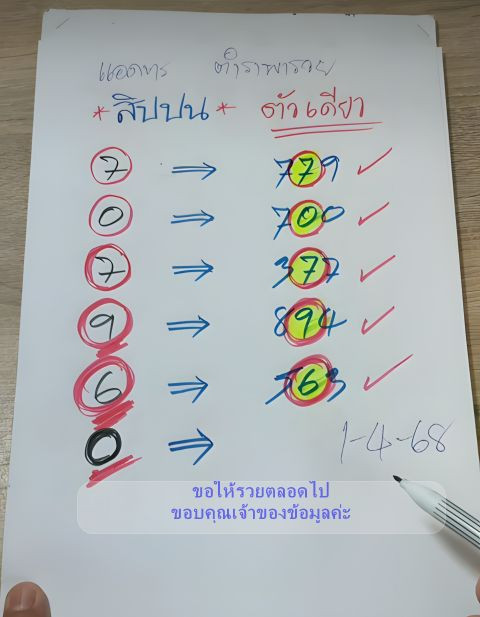 แอดทาร ตำราพารวย
* สิปปน * ตัวเดียว
7 ⇒ 779 ✓
0 ⇒ 700 ✓
7 ⇒ 377 ✓
9 ⇒ 894 ✓
6 ⇒ 563 ✓
0 ⇒
1-4-68
ขอให้รวยตลอดไป
ขอบคุณเจ้าของข้อมูลค่ะ